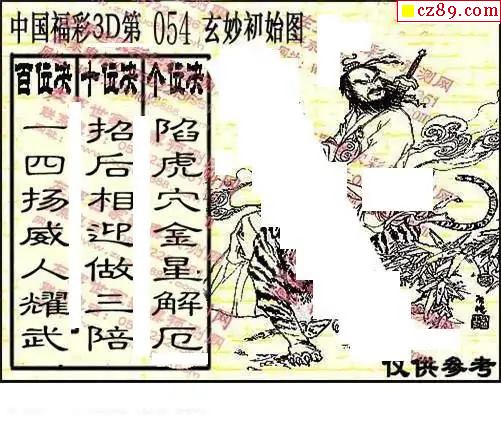 cz89.com
中国福彩3D第 054 玄妙初始图
百位决 十位决 个位决
一四扬威人耀武
招后相迎做三陪
陷虎穴金星解厄
仅供参考